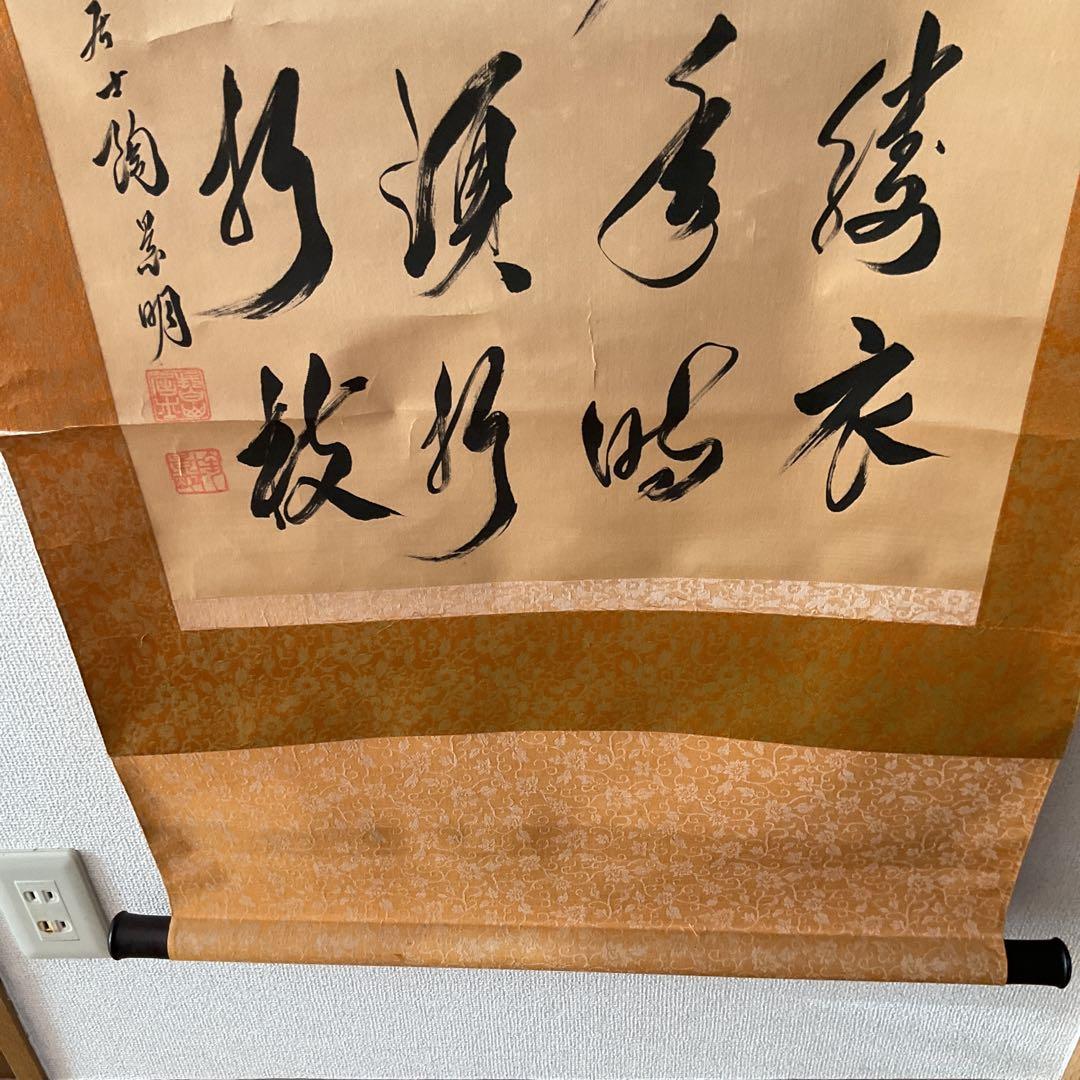 縷衣
年時
須折
折枝
居士陶景明